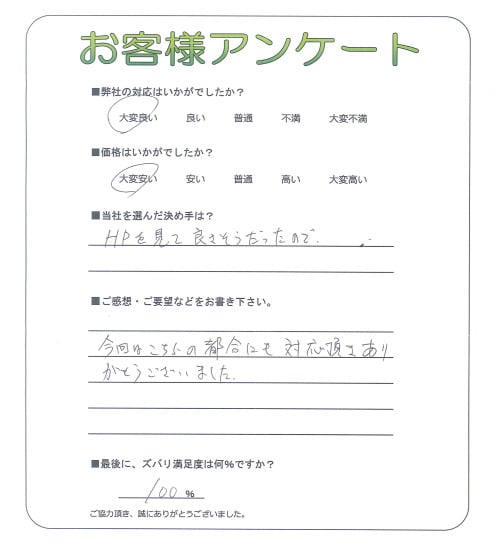 お客様アンケート
■弊社の対応はいかがでしたか?
大変良い 良い 普通 不満 大変不満
■価格はいかがでしたか?
大変安い 安い 普通 高い 大変高い
■当社を選んだ決め手は?
HPを見て良さそうだったので.
■ご感想・ご要望などをお書き下さい。
今回はこちらの都合にも対応頂きあり
がとうございました.
■最後に、ズバリ満足度は何%ですか?
100 %
ご協力頂き、誠にありがとうございました。